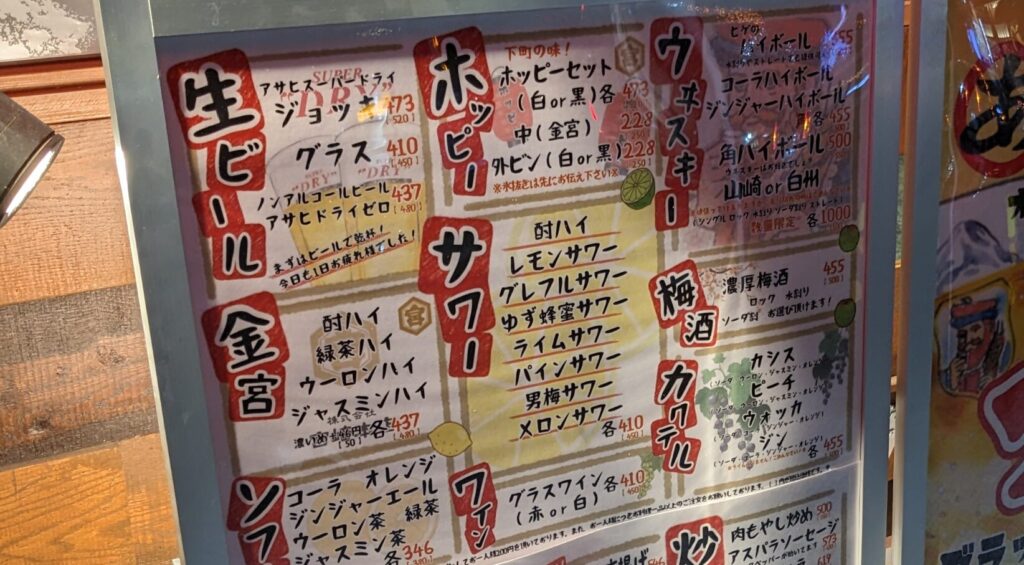 生ビール
アサヒスーパードライ
SUPER "DRY"
ジョッキ 473
[520]
グラス 410
[450]
ノンアルコールビール 437
アサヒドライゼロ [480]
まずはビールで乾杯！
今日も1日お疲れ様でした！
金宮
酎ハイ
緑茶ハイ
ウーロンハイ
ジャスミンハイ
各437
[480]
[50]
ソフ
コーラ オレンジ
ジンジャーエール
ウーロン茶 緑茶
ジャスミン茶
各346
[380]
ホッピー
下町の味！
ホッピーセット
(白or黒)各 473
中(金宮) 228
外ビン(白or黒) 228
[250]
※氷抜きは先にお伝え下さい※
サワー
酎ハイ
レモンサワー
グレフルサワー
ゆず蜂蜜サワー
ライムサワー
パインサワー
男梅サワー
メロンサワー
各410
[450]
ワイン
グラスワイン各410
(赤 or 白) [450]
ウヰスキー
ヒゲの
ハイボール 455
コーラハイボール
ジンジャーハイボール
各455
角ハイボール 500
山崎or白州
(シングル ロック 水割り ソーダ割り ストレート)
数量限定 各1000
梅酒
濃厚梅酒 455
[500]
ロック 水割り
ソーダ割 お選び頂けます！
カクテル
カシス
ピーチ
ウォッカ
ジン
各455
炒
肉もやし炒め 500
アスパラソーセージ 573